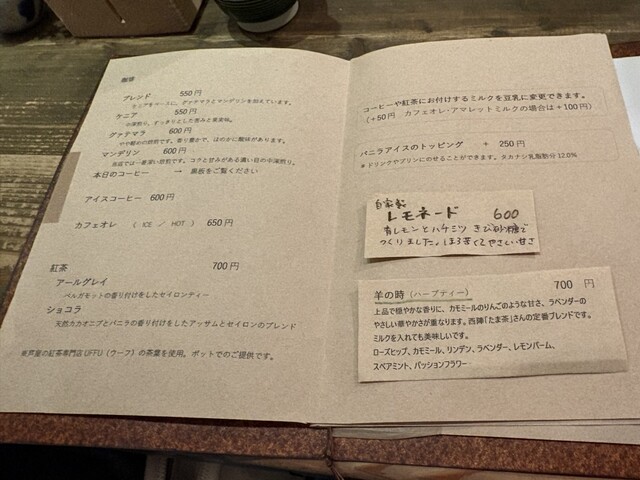 珈琲
ブレンド 550円
ケニアをベースに、グァテマラとマンデリンを加えています。
ケニア 550円
の深煎り。すっきりとした苦みと果実味。
グァテマラ 600円
やや軽めの焙煎です。香り豊かで、ほのかに酸味があります。
マンデリン 600円
当店では一番深い焙煎です。コクと甘みがある濃い目の中深煎り。
本日のコーヒー → 黒板をご覧ください
アイスコーヒー 600円
カフェオレ ( ICE / HOT ) 650円
紅茶 700円
アールグレイ
ベルガモットの香り付けをしたセイロンティー
ショコラ
天然カカオニブとバニラの香り付けをしたアッサムとセイロンのブレンド
※芦屋の紅茶専門店UFFU(ウーフ)の茶葉を使用。ポットでのご提供です。
コーヒーや紅茶にお付けするミルクを豆乳に変更できます。
(+50円 カフェオレ・アマレットミルクの場合は+100円)
バニラアイスのトッピング + 250円
※ドリンクやプリンにのせることができます。タカナシ乳脂肪分12.0%
自家製
レモネード 600
青レモンとハチミツ きび砂糖で
つくりました。ほろ苦くてやさしい甘さ
羊の時(ハーブティー) 700円
上品で穏やかな香りに、カモミールのりんごのような甘さ、ラベンダーの
やさしい華やかさが重なります。西陣「たま茶」さんの定番ブレンドです。
ミルクを入れても美味しいです。
ローズヒップ、カモミール、リンデン、ラベンダー、レモンバーム、
スペアミント、パッションフラワー